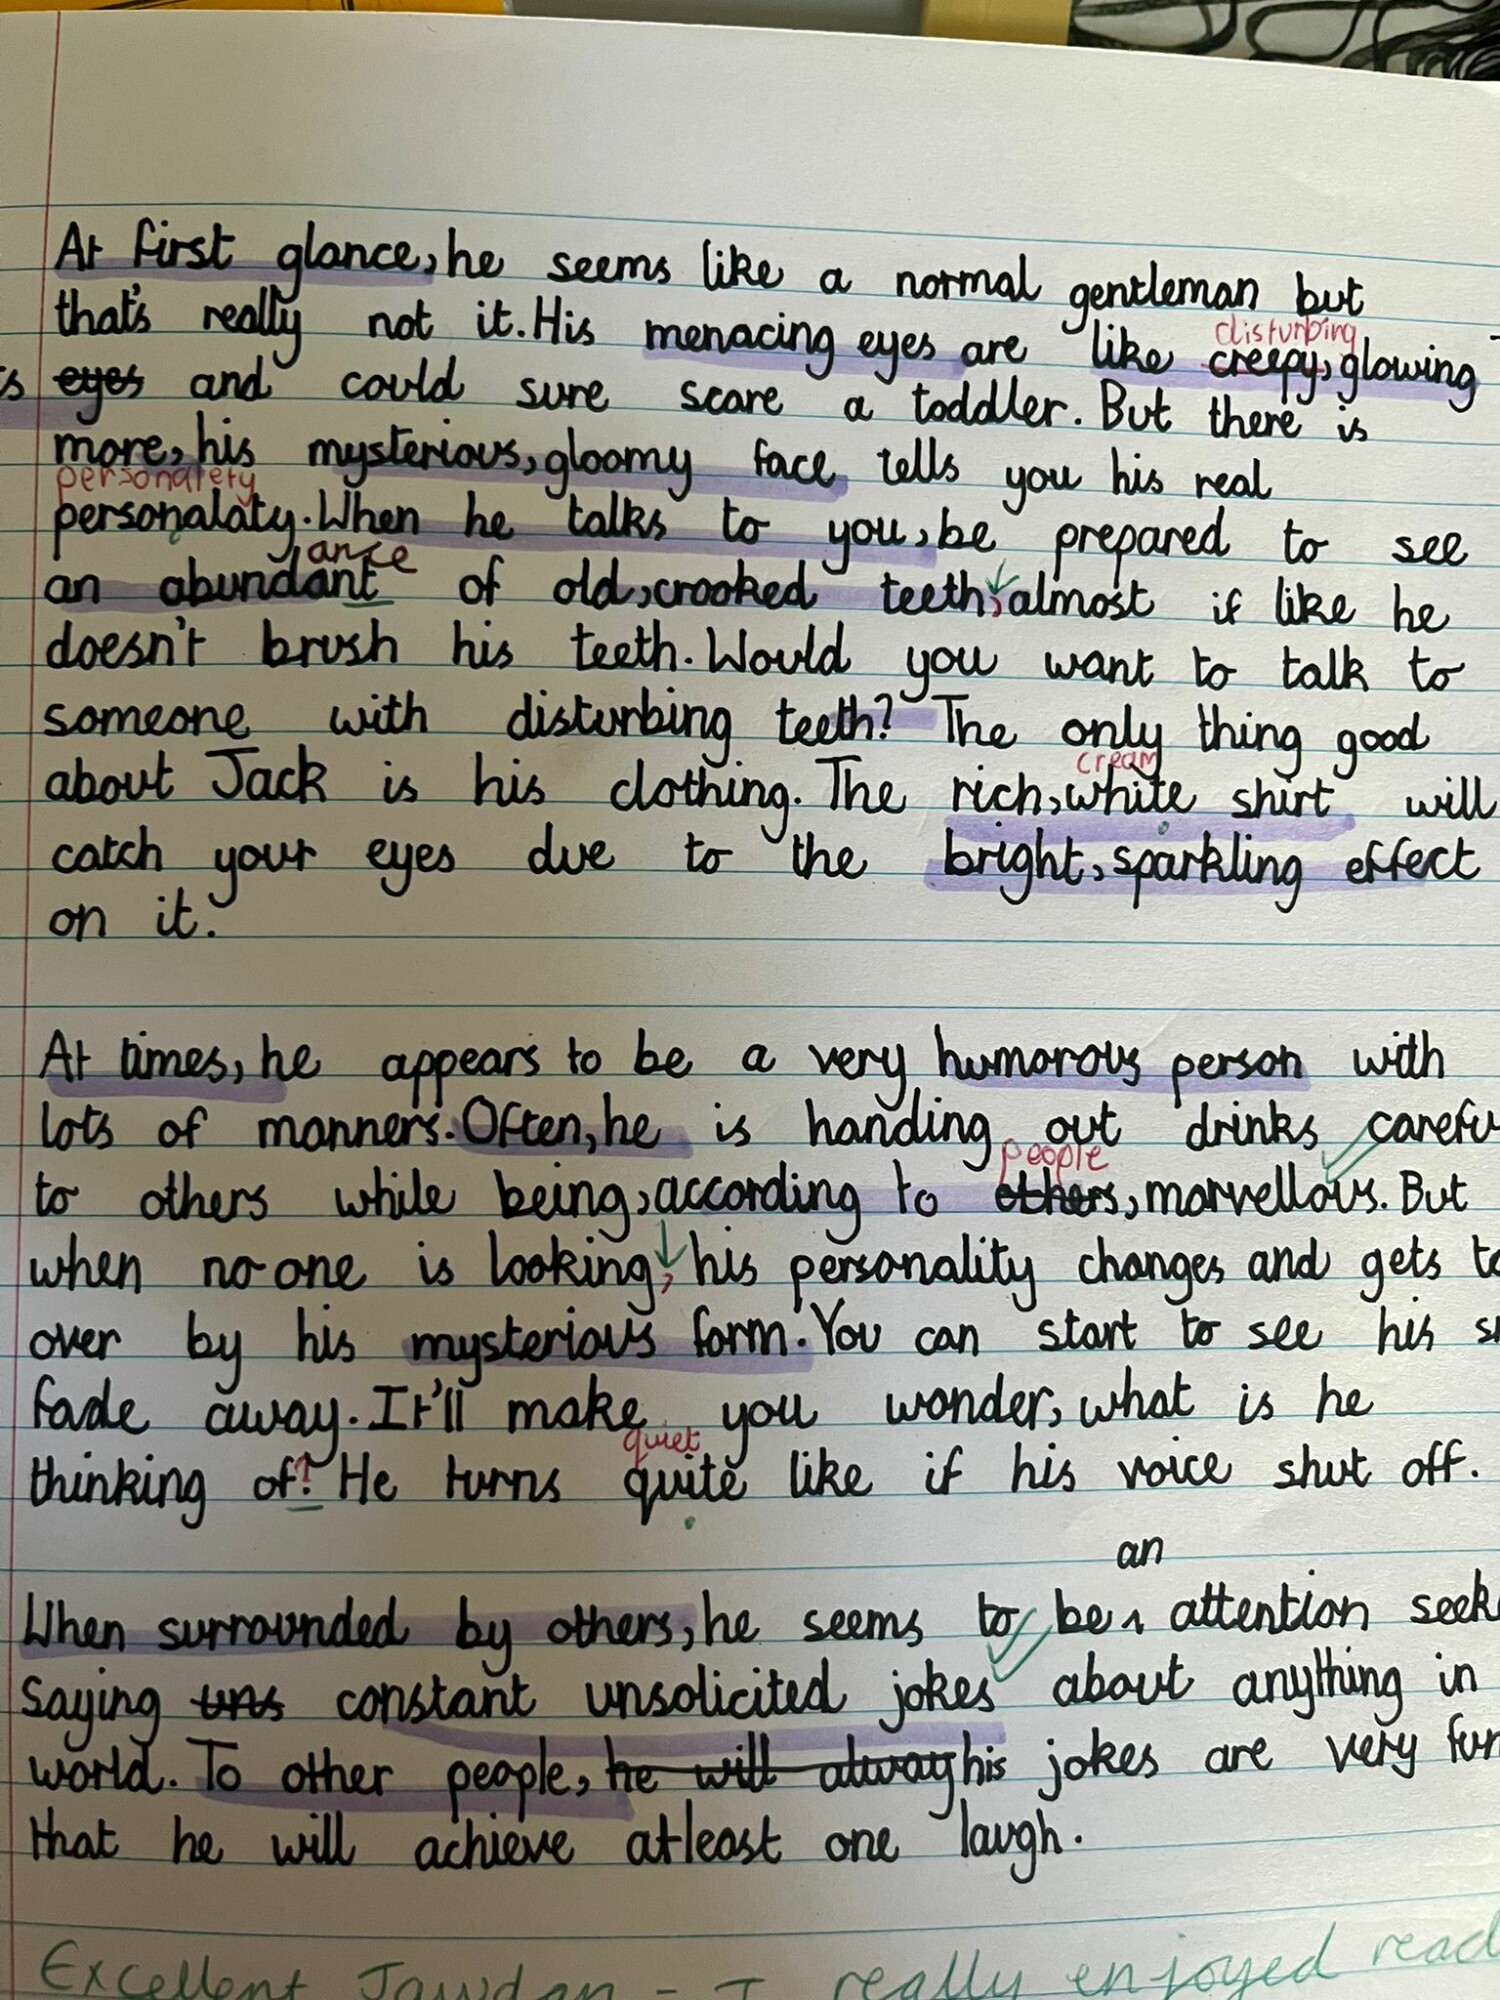 At first glance, he seems like a normal gentleman but
that's really not it. His menacing eyes are like disturbing creepy, glowing
eyes and could sure scare a toddler. But there is
more, his mysterious, gloomy face tells you his real
personalety
personalaty. When he talks to you, be prepared to see
ance
an abundant of old, crooked teeth, almost if like he
doesn't brush his teeth. Would you want to talk to
someone with disturbing teeth? The only thing good
cream
about Jack is his clothing. The rich, white shirt will
catch your eyes due to the bright, sparkling effect
on it.
At times, he appears to be a very humorous person with
lots of manners. Often, he is handing out drinks carefu
people
to others while being, according to others, marvellous. But
when no one is looking, his personality changes and gets ta
over by his mysterious form. You can start to see his
fade away. It'll make you wonder, what is he
quiet
thinking of? He turns quite like if his voice shut off.
an
When surrounded by others, he seems to be attention seek
saying uns constant unsolicited jokes about anything in
world. To other people, he will alway his jokes are very fun
that he will achieve atleast one laugh.
Excellent Jawdan - I really enjoyed read